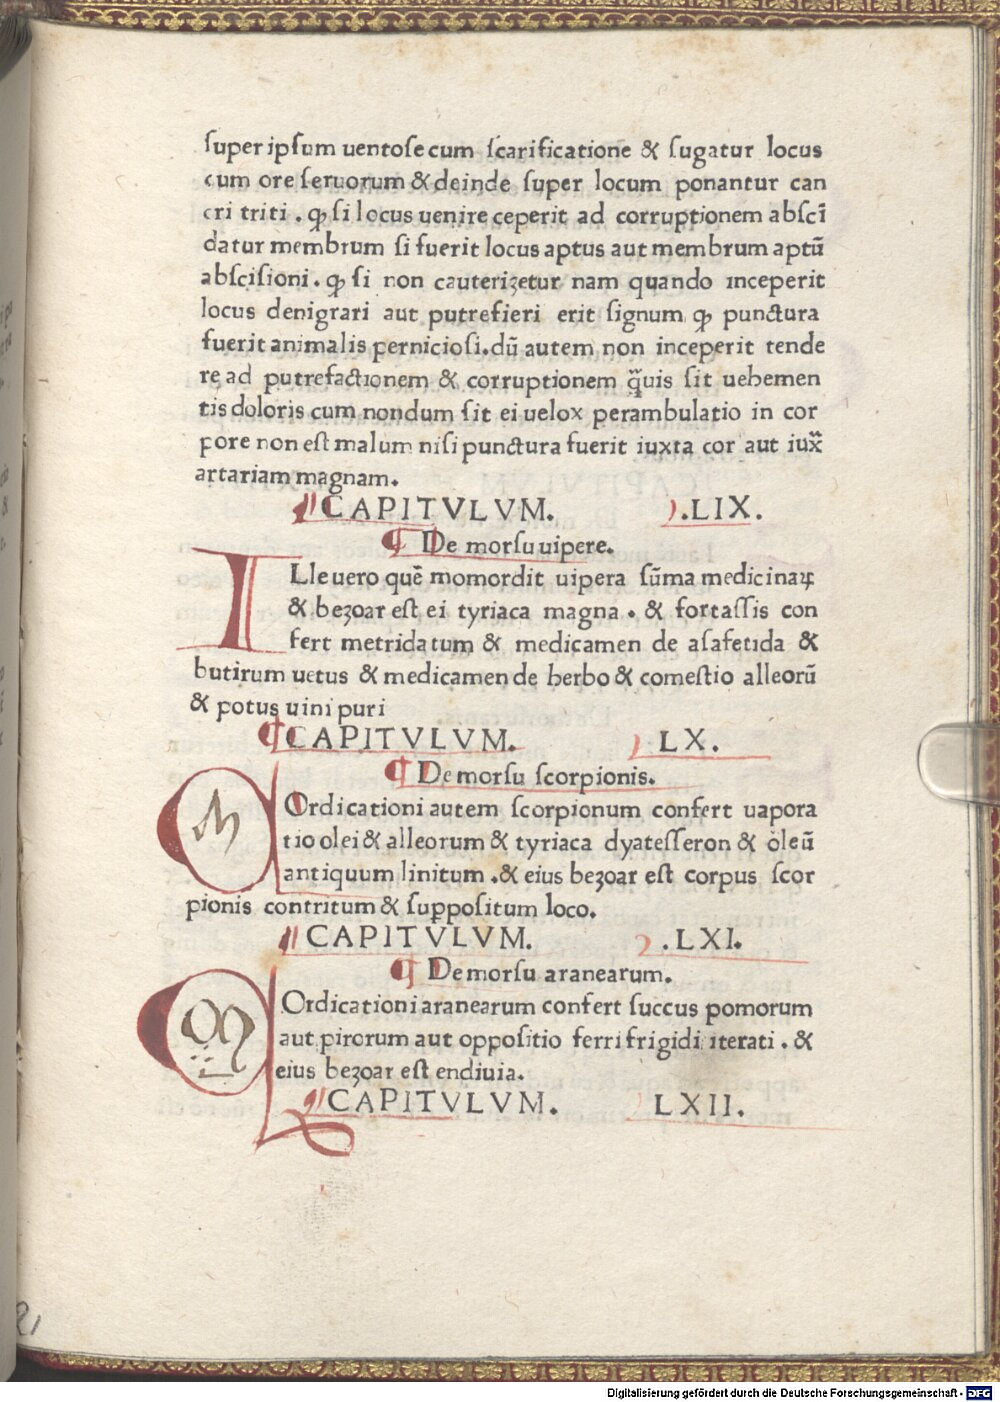 ſuper ipſum uentoſe cum ſcarificatione & ſugatur locus
cum ore ſeruorum & deinde ſuper locum ponantur can
cri triti . ꝙ ſi locus uenire ceperit ad corruptionem abſcī
datur membrum ſi fuerit locus aptus aut membrum aptū
abſciſioni . ꝙ ſi non cauteriȝetur nam quando inceperit
locus denigrari aut putrefieri erit ſignum ꝙ punctura
fuerit animalis pernicioſi. dū autem non inceperit tende
re ad putrefactionem & corruptionem q̄uis ſit uehemen
tis doloris cum nondum ſit ei uelox perambulatio in cor
pore non eſt malum niſi punctura fuerit iuxta cor aut iux̄
artariam magnam.
¶ CAPITVLVM. .LIX.
¶ De morſu uipere.
ILle uero quē momordit uipera ſūma medicinaꝝ
& beȝoar eſt ei tyriaca magna . & fortaſſis con
fert metridatum & medicamen de aſafetida &
butirum uetus & medicamen de herbo & comeſtio alleorū
& potus uini puri
¶ CAPITVLVM. LX.
¶ De morſu ſcorpionis.
MOrdicationi autem ſcorpionum confert uapora
tio olei & alleorum & tyriaca dyateſſeron & oleū
antiquum linitum . & eius beȝoar eſt corpus ſcor
pionis contritum & ſuppoſitum loco.
¶ CAPITVLVM. .LXI.
¶ De morſu aranearum.
MOrdicationi aranearum confert ſuccus pomorum
aut pirorum aut oppoſitio ferri frigidi iterati . &
eius beȝoar eſt endiuia.
¶ CAPITVLVM. LXII.
Digitalisierung gefördert durch die Deutsche Forschungsgemeinschaft - DFG